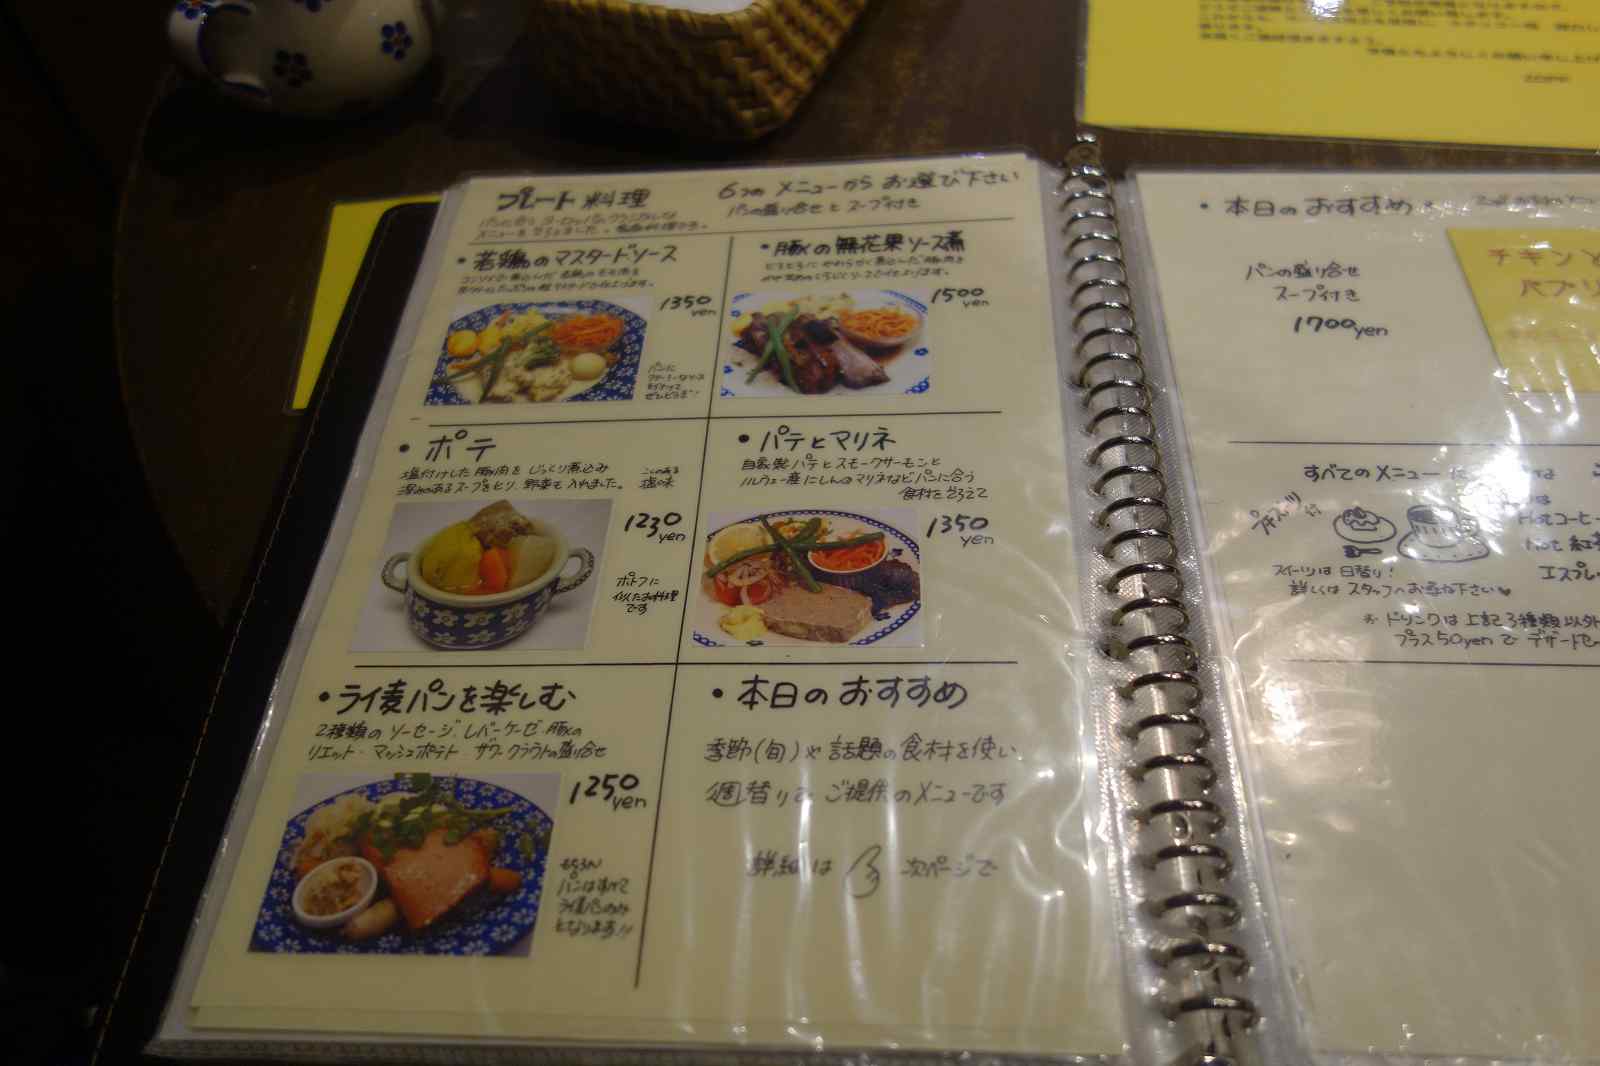 プレート料理
6つの メニューから お選び下さい
パンの盛り合せ と スープ付き
・若鶏のマスタードソース
1350
yen
パンに
・豚の無花果ソース煮
1500
yen
・ポテ
塩付けした豚肉を じっくり煮込み
深みのあるスープをとり、野菜も入れました。
こくのある
塩味
1230
yen
ポトフに
似たお料理
です
・パテとマリネ
自家製パテとスモークサーモンと
ノルウェー産にしんのマリネなどパンに合う
食材をそろえて
1350
yen
・ライ麦パンを楽しむ
2種類の ソーセージ、レバーケーゼ、豚の
リエット・マッシュポテト・ザワークラウトの盛り合せ
1250
yen
もちろん
パンはすべて
ライ麦パンのみ
となります!!
・本日の おすすめ
季節(旬)や 話題の食材を使い
週替りで ご提供のメニューです
詳細は 次ページで
・本日の おすすめ
パンの盛り合せ
スープ付き
1700yen
チキンと
パプリ
すべてのメニューに
プチスイーツ付
Hotコーヒー
Hot 紅茶
エスプレ
スイーツは 日替り!
詳しくは スタッフへお尋ね下さい♥
※ ドリンクは上記3種類以外
プラス50yenで デザートセ